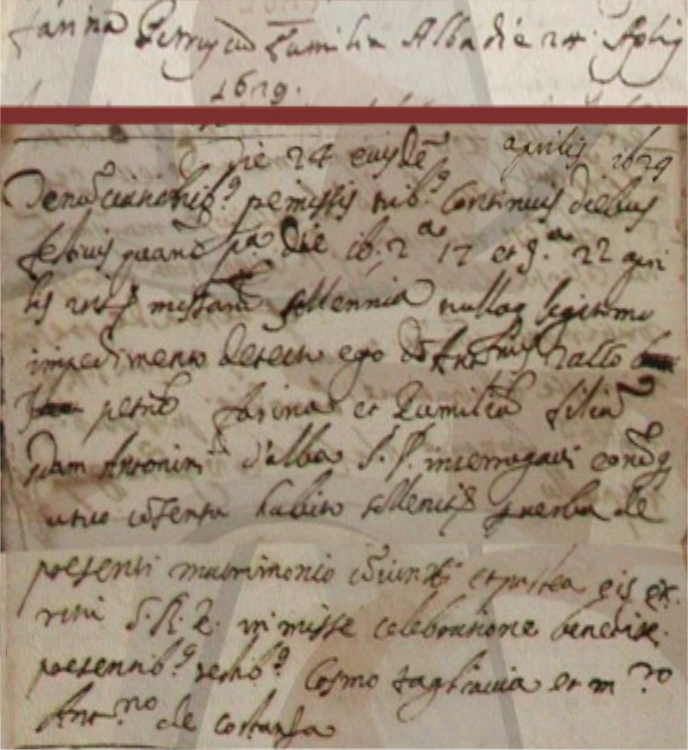 farina Petrus cũ Zumilia Alba die 24 Aplis
1629.
Die 24 eiusdē aprilis 1629
Denũciationib9 pemissis trib9 continuis diebus
festiuis quarũ pa die 16. 2a 17 et 3.a 22 apri
lis missarũ sollennia nulloq legitimo
impedimento detecto ego
petrũ farina et Zumiliã filiã
qdam Antonini d'alba S. P. interrogaui eorũq
utuo cõsensu habito sollenit p uerba de
presenti matrimonio cõiunxi et postea eis ex
ritu S. R. E. in misse celebratione benedixi
presentib9 testib9 Cosmo tagliauia et m ro
Ant.no de costansa